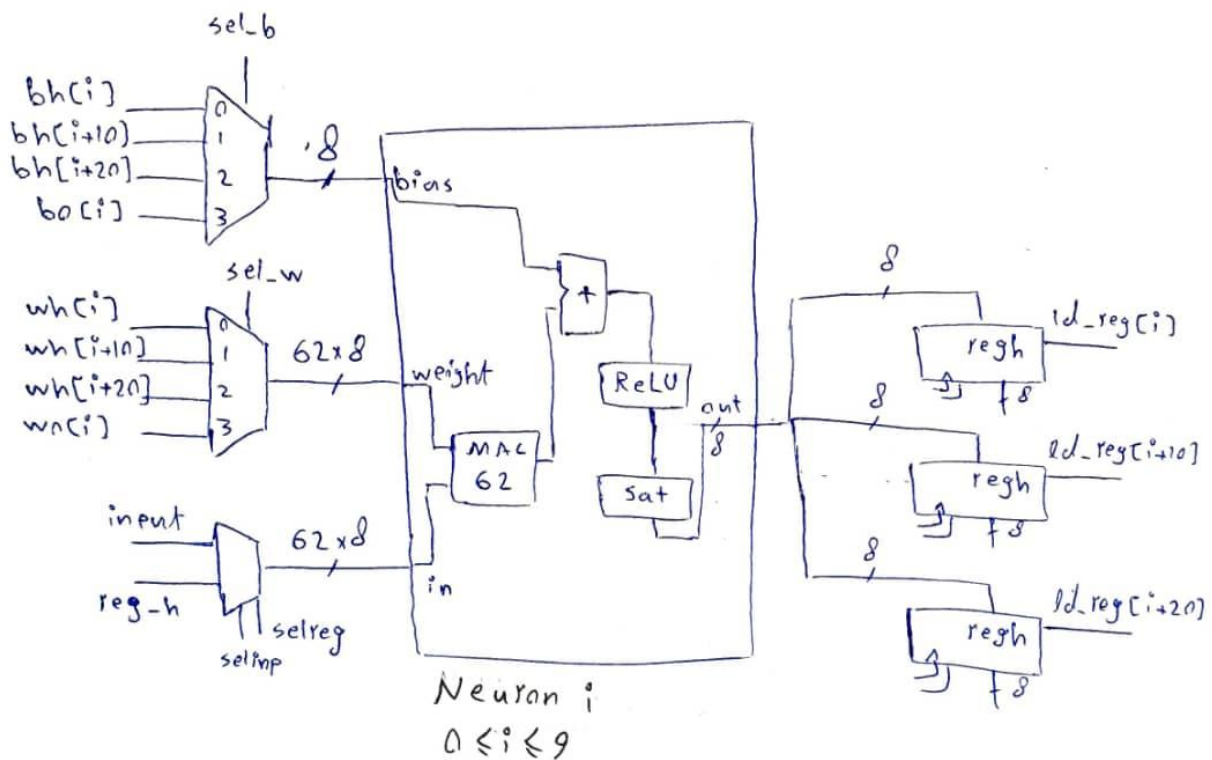 sel_b
bh[i]
bh[i+10]
bh[i+20]
bo[i]
0
1
2
3
8
bias
sel_w
wh[i]
wh[i+10]
wh[i+20]
wo[i]
0
1
2
3
62x8
weight
input
reg_h
62x8
in
selreg
selinp
MAC
62
+
ReLU
Sat
out
8
8
regh
ld_reg[i]
8
8
regh
ld_reg[i+10]
8
8
regh
ld_reg[i+20]
8
Neuron i
0 ≤ i ≤ 9